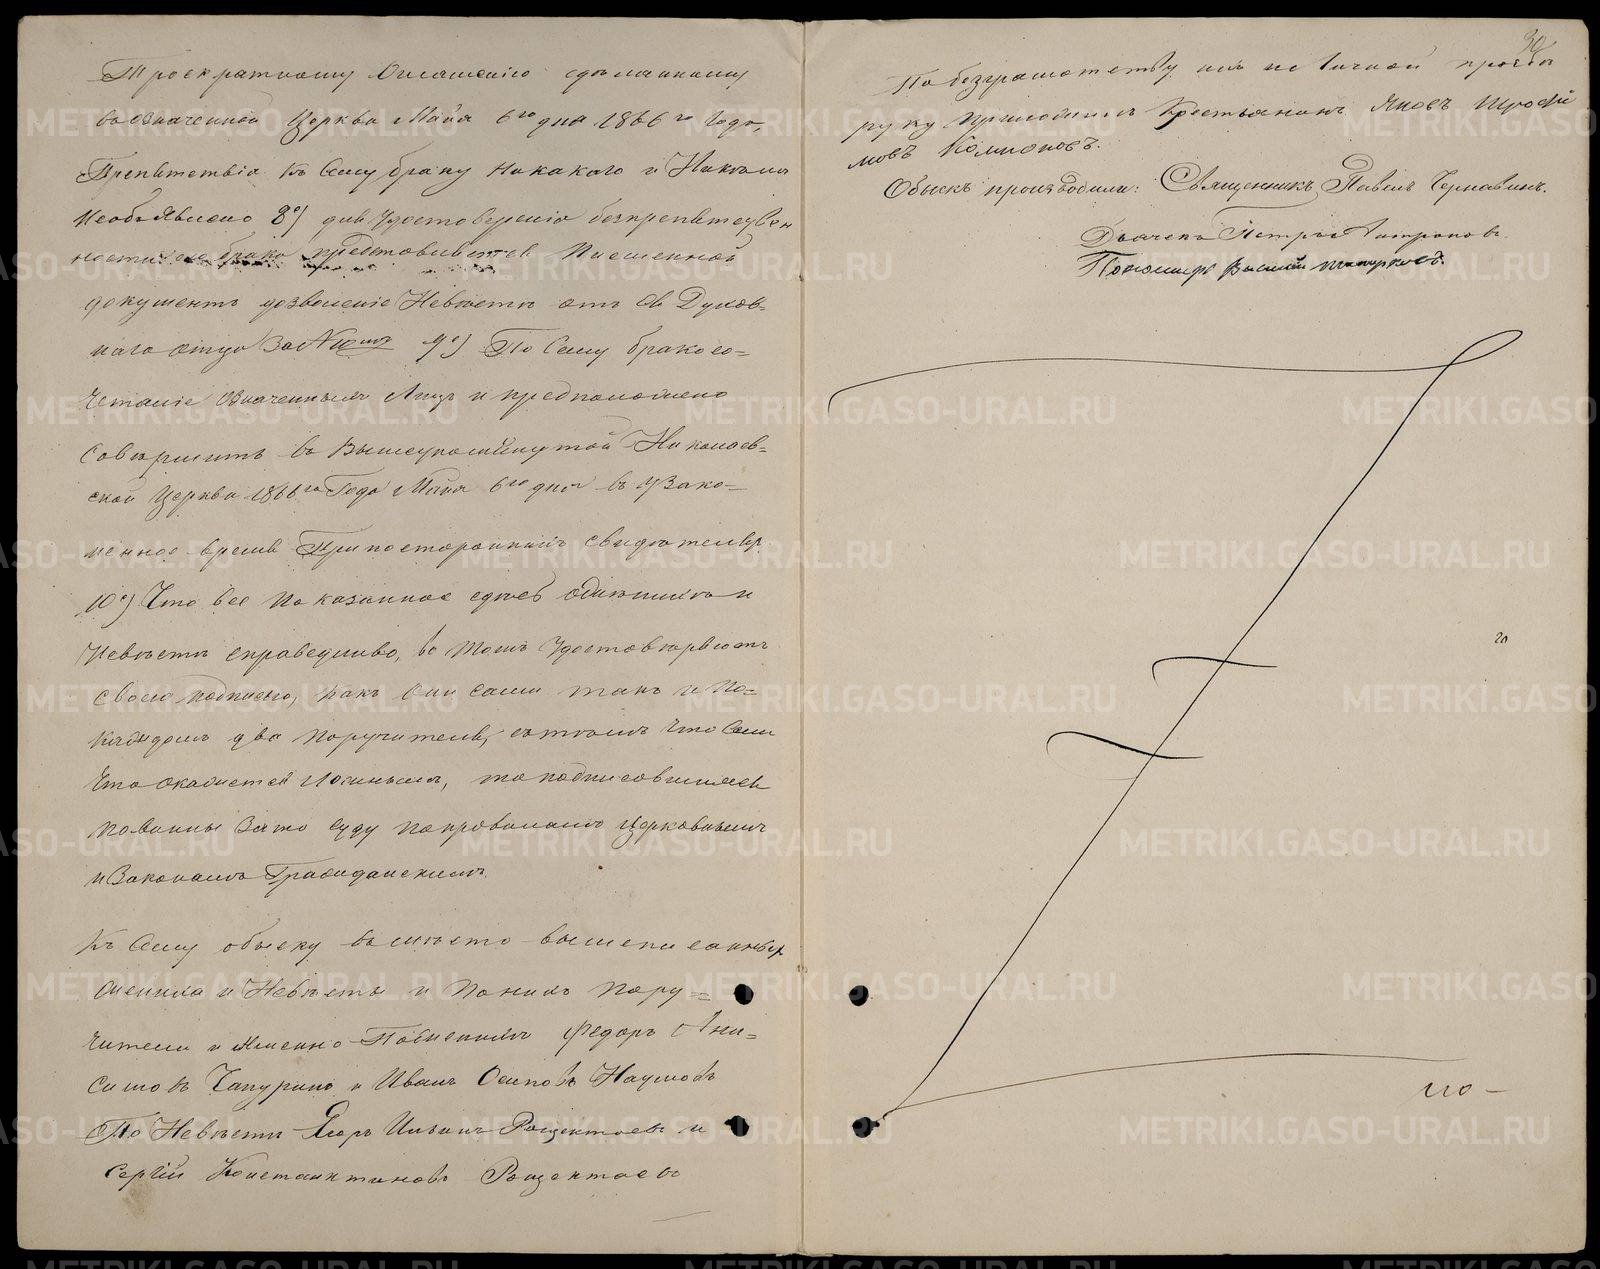 Троекратному Оглашенію сдѣланному
въ означенной Церкви Маія 6го дня 1866го Года,
Препятствія Къ Сему браку Никакого и Никѣмъ
Необъявлено 8е) для Удостовѣренія безпрепятствен
ности сего брака представляется Писменной
документъ дозволеніе Невѣсты отъ
отца За № 9е) По Сему бракосо=
четаніе Означенныхъ Лицъ и предположено
Совершить въ Вышеупомянутой Николаев=
ской Церкви 1866го Года Маія 6го дня въ Узако=
ненное время При постороннихъ свидѣтеляхъ
10е) Что все показанное здѣсь о женихѣ и
Невѣстѣ справедливо, въ томъ Удостовѣряютъ
своею подписью, какъ они сами такъ и по=
каждомъ два поручителя, съ тѣмъ что Если
Что окажется Ложнымъ, то подписавшіеся
повинны За то Суду по правиламъ Церковнымъ
и Законамъ Гражданскимъ.
Къ Сему обыску вмѣсто вышеписанныхъ
Жениха и Невѣсты и По нихъ Пору=
чители и Именно По Женихѣ Федоръ Ани=
симовъ Чапуринъ и Иванъ Осиповъ Наумовъ
По Невѣстѣ Егоръ Ильинъ Рощектаевъ и
Сергѣй Константиновъ Рощектаевъ
30
По безграмотству ихъ и Личной прозьбы
руку приложилъ Крестьянинъ Яковъ Трофи
мовъ
Обыскъ производили: Священникъ Павелъ Чернавинъ.
Дьячекъ Петръ
Пономарь Василій
20
по-
METRIKI.GASO-URAL.RU